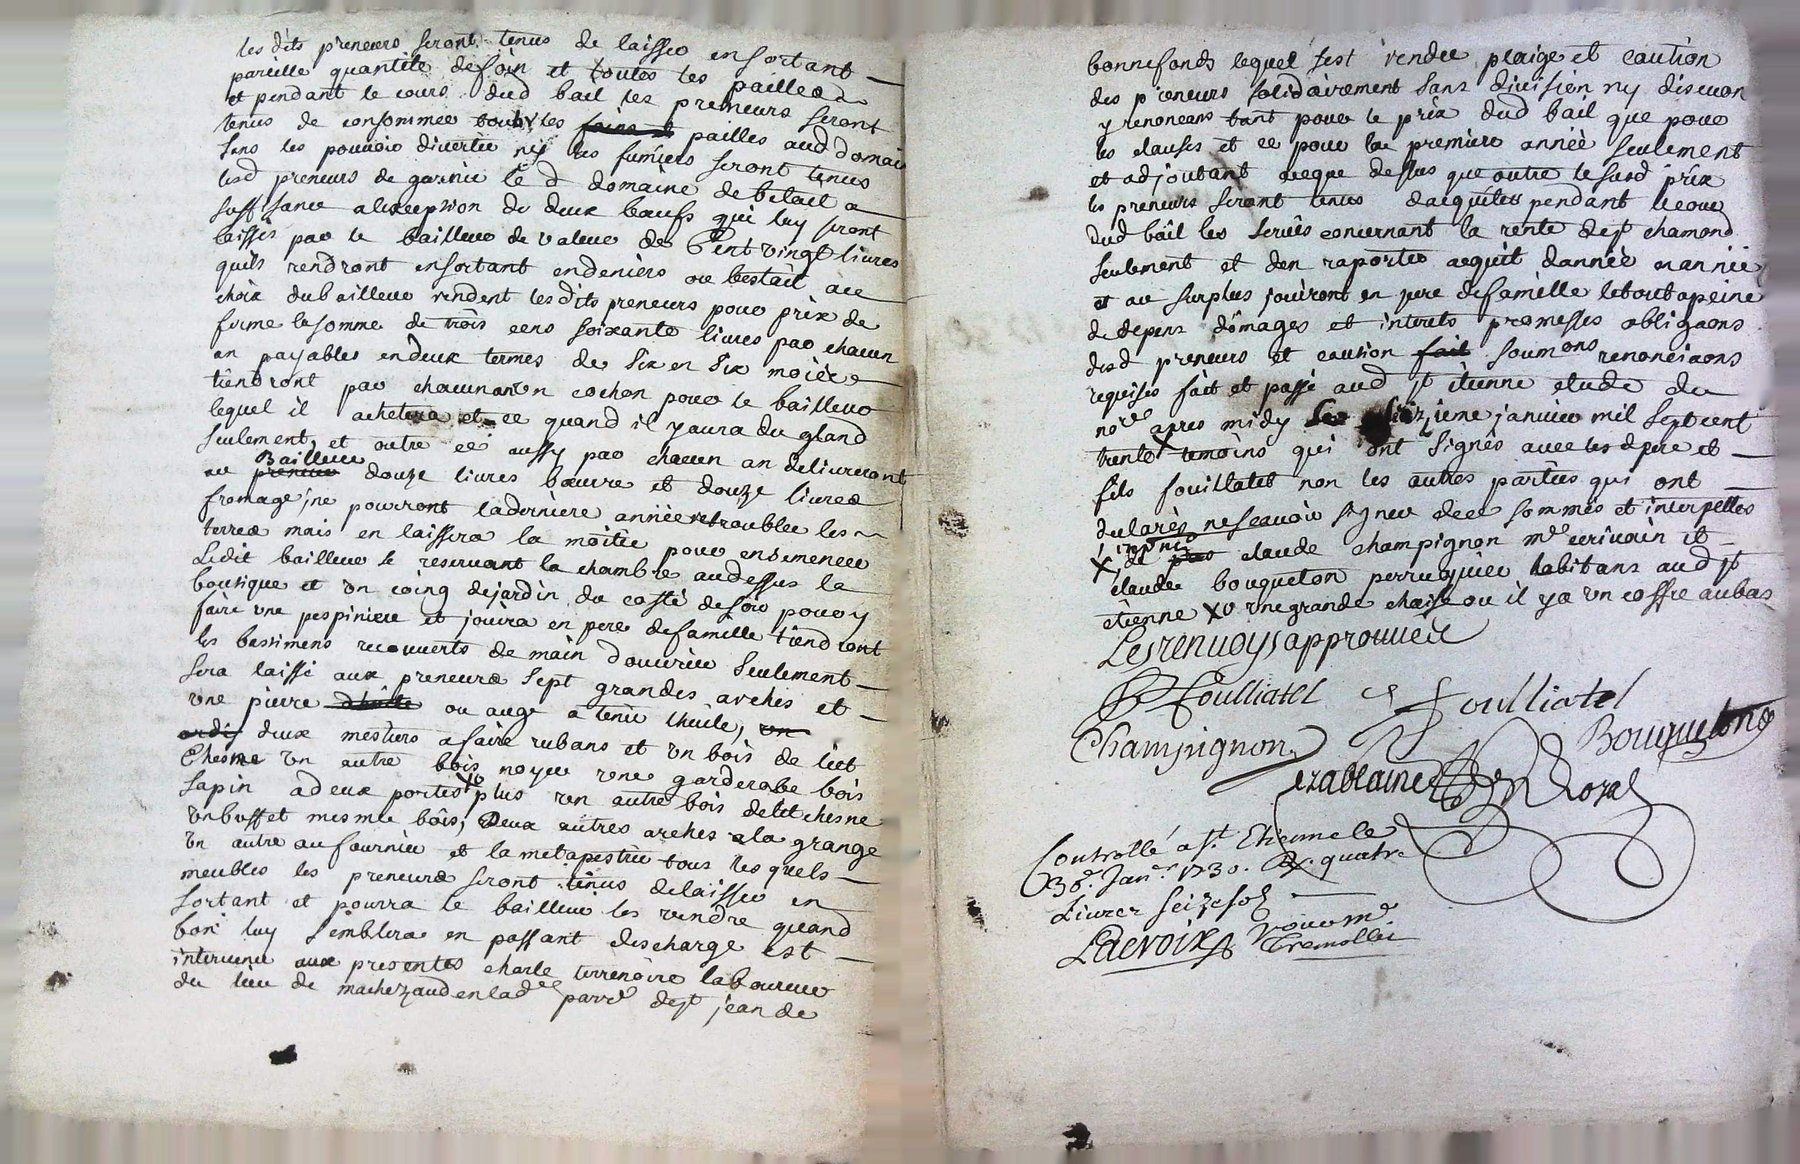 les dits preneurs seront tenus de laisser en sortant
pareille quantité de foin et toutes les pailles
et pendant le cours dud bail les preneurs seront
tenus de consommer touttes les foins et pailles aud domaine
sans les pouvoir divertir ny les fumiers seront tenus
lesd preneurs de garnir le d domaine de betail a
suffisance alexeption de deux bœufs qui luy seront
laissés par le bailleur de valeur de Cent vingt livres
quils rendront ensortant endeniers ou bestail au
choix dubailleur rendent lesdits preneurs pour prix de
ferme la somme de trois cens soixante livres par chacun
an payables endeux termes de six en six mois
tiendront par chacunan un cochon pour le bailleur
lequel il achetera et ce quand il yaura du gland
seulement, et outre ce aussy par chacun an delivreront
au Bailleur preneur douze livres bœurre et douze livres
fromage, ne pourront laderniere année retroubler les
terres mais en laissera la moitié pour ensemencer
Ledit bailleur se reservant la chambre audessus la
boutique et un coing dejardin du costé de soir pour y
faire une pespiniere et jouira en pere defamille tiendront
les bastimens recouverts de main douvrier seulement
sera laissé aux preneurs sept grandes arches et
une pierre dhuile ou auge a tenir lhuile, un
deux mestiers afaire rubans et un bois de liet
Chesne un autre bois noyer une garderobe bois
sapin adeux portes x plus un autre bois delit chesne
un buffet mesme bois, deux autres arches ala grange
un autre au fournier et la metapestrie tous lesquels
meubles les preneurs seront tenus delaisser en
sortant et pourra le bailleur les vendre quand
bon luy semblera en passant descharge est
intervenu aux presentes charle terrenoire laboureur
du lieu de machezaud en lad parr de st jean de
bonnefonds lequel sest rendu plaige et caution
des preneurs solidairement sans division ny discuon
y renoncans tant pour le prix dud bail que pour
les clauses et ce pour la premiere année seulement
et adjoutant aceque dessus que outre le susd prix
les preneurs seront tenus dacquiter pendant lecour
dud bail les servis concernant la rente de st chamond
seulement et den raporter acquit dannée enannée
et au surplus jouiront en pere defamille letoutapeine
de depens domages et interets promesses obligaons
desd preneurs et caution fait soumons renonciaons
requises fait et passé aud st étienne etude du
nore apres midy le seizieme janvier mil septcent
trente x temoins qui ont signés avec les d pere et
fils fouillatet non les autres parties qui ont
declarés nesçavoir signer dece sommés et interpellés
x de claude champignon me ecrivain et
claude bouqueton perruquier habitans aud st
étienne x une grande chaise ou il ya un coffre aubas
Les renvoys approuvés
Foulliatel Foulliatel
Champignon Bouqueton
Controllé a St. Etienne le
30e. Janer. 1730. R. quatre
Livres seize sols
Lacroix pour mr.
Tremollet